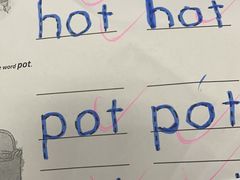 hot hot
e word pot.
pot pot